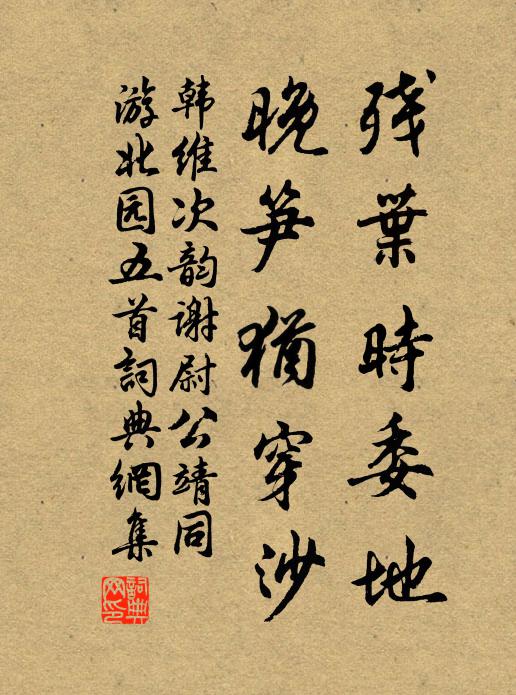 残葉時委地
晚笋猶穿沙
韩维次韵谢尉公靖同
游北园五首詞典網集
詞典网印